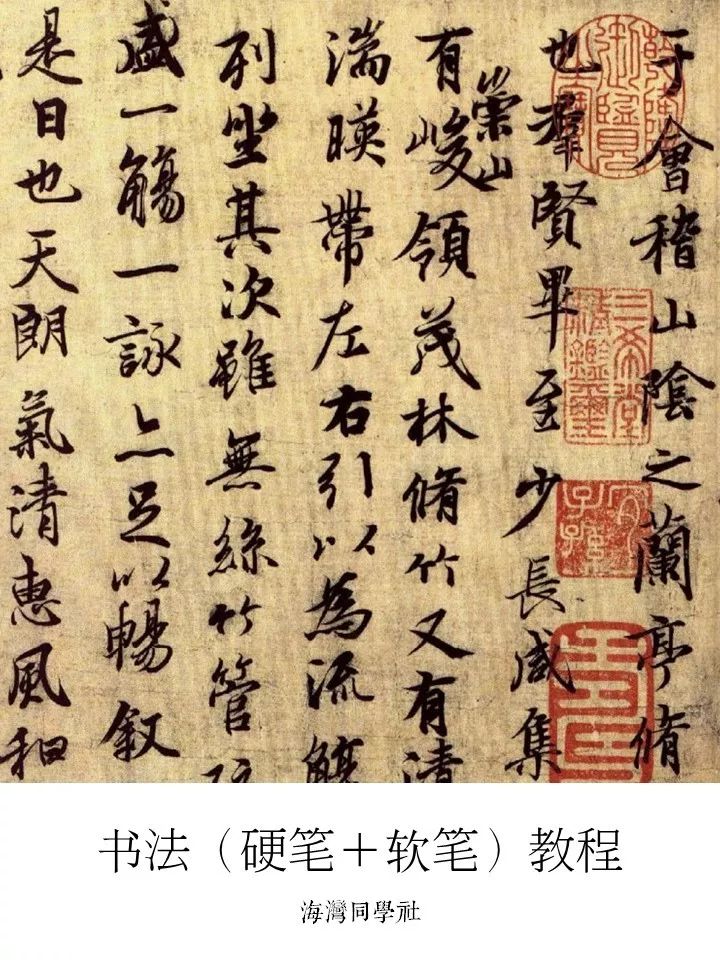 于會稽山陰之蘭亭脩
也羣賢畢至少長咸集
有崇山峻領茂林脩竹又有清
湍暎帶左右引以為流觴
列坐其次雖無絲竹管
盛一觴一詠亦足以暢叙
是日也天朗氣清惠風和
三希堂
精鑑璽
宜子孫
书法（硬笔＋软笔）教程
海灣同學社